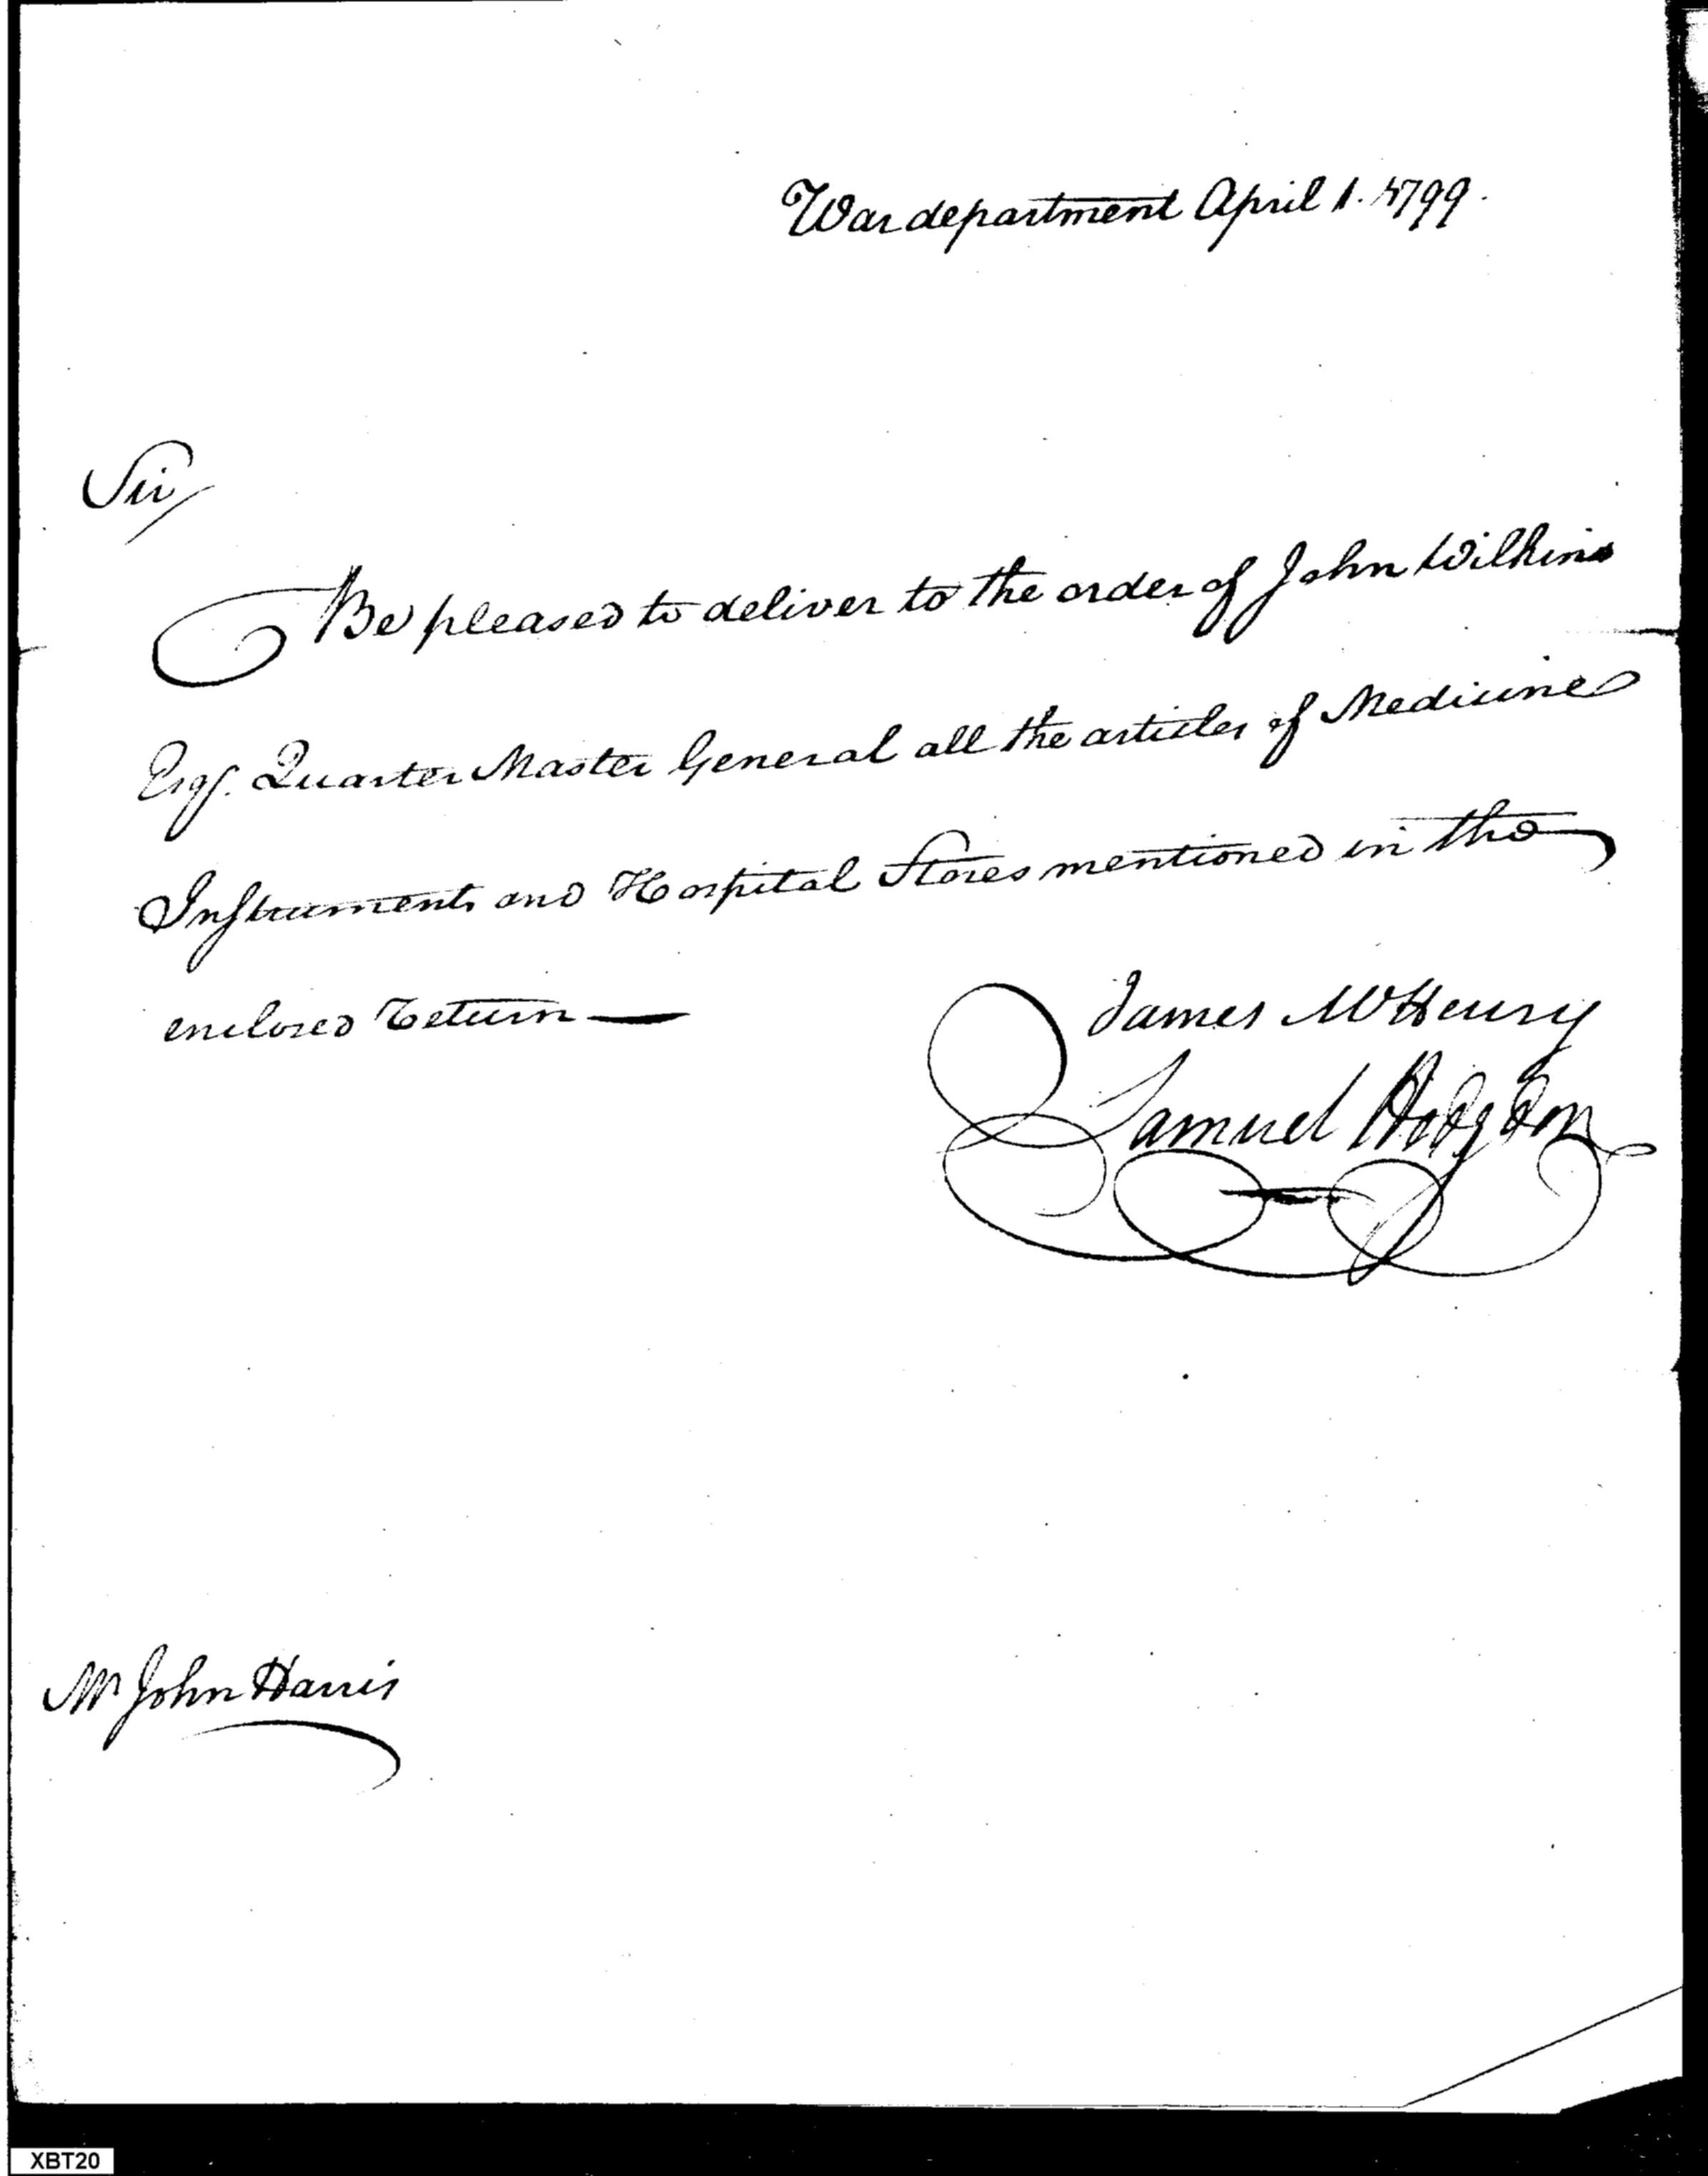 War department April 1. 1799.
Sir
Be pleased to deliver to the order of John Wilkins
Esqr. Quarter Master General all the articles of Medicine
Instruments and Hospital Stores mentioned in the
enclosed return —
James McHenry
Samuel Hodgdon
Mr John Harris
XBT20